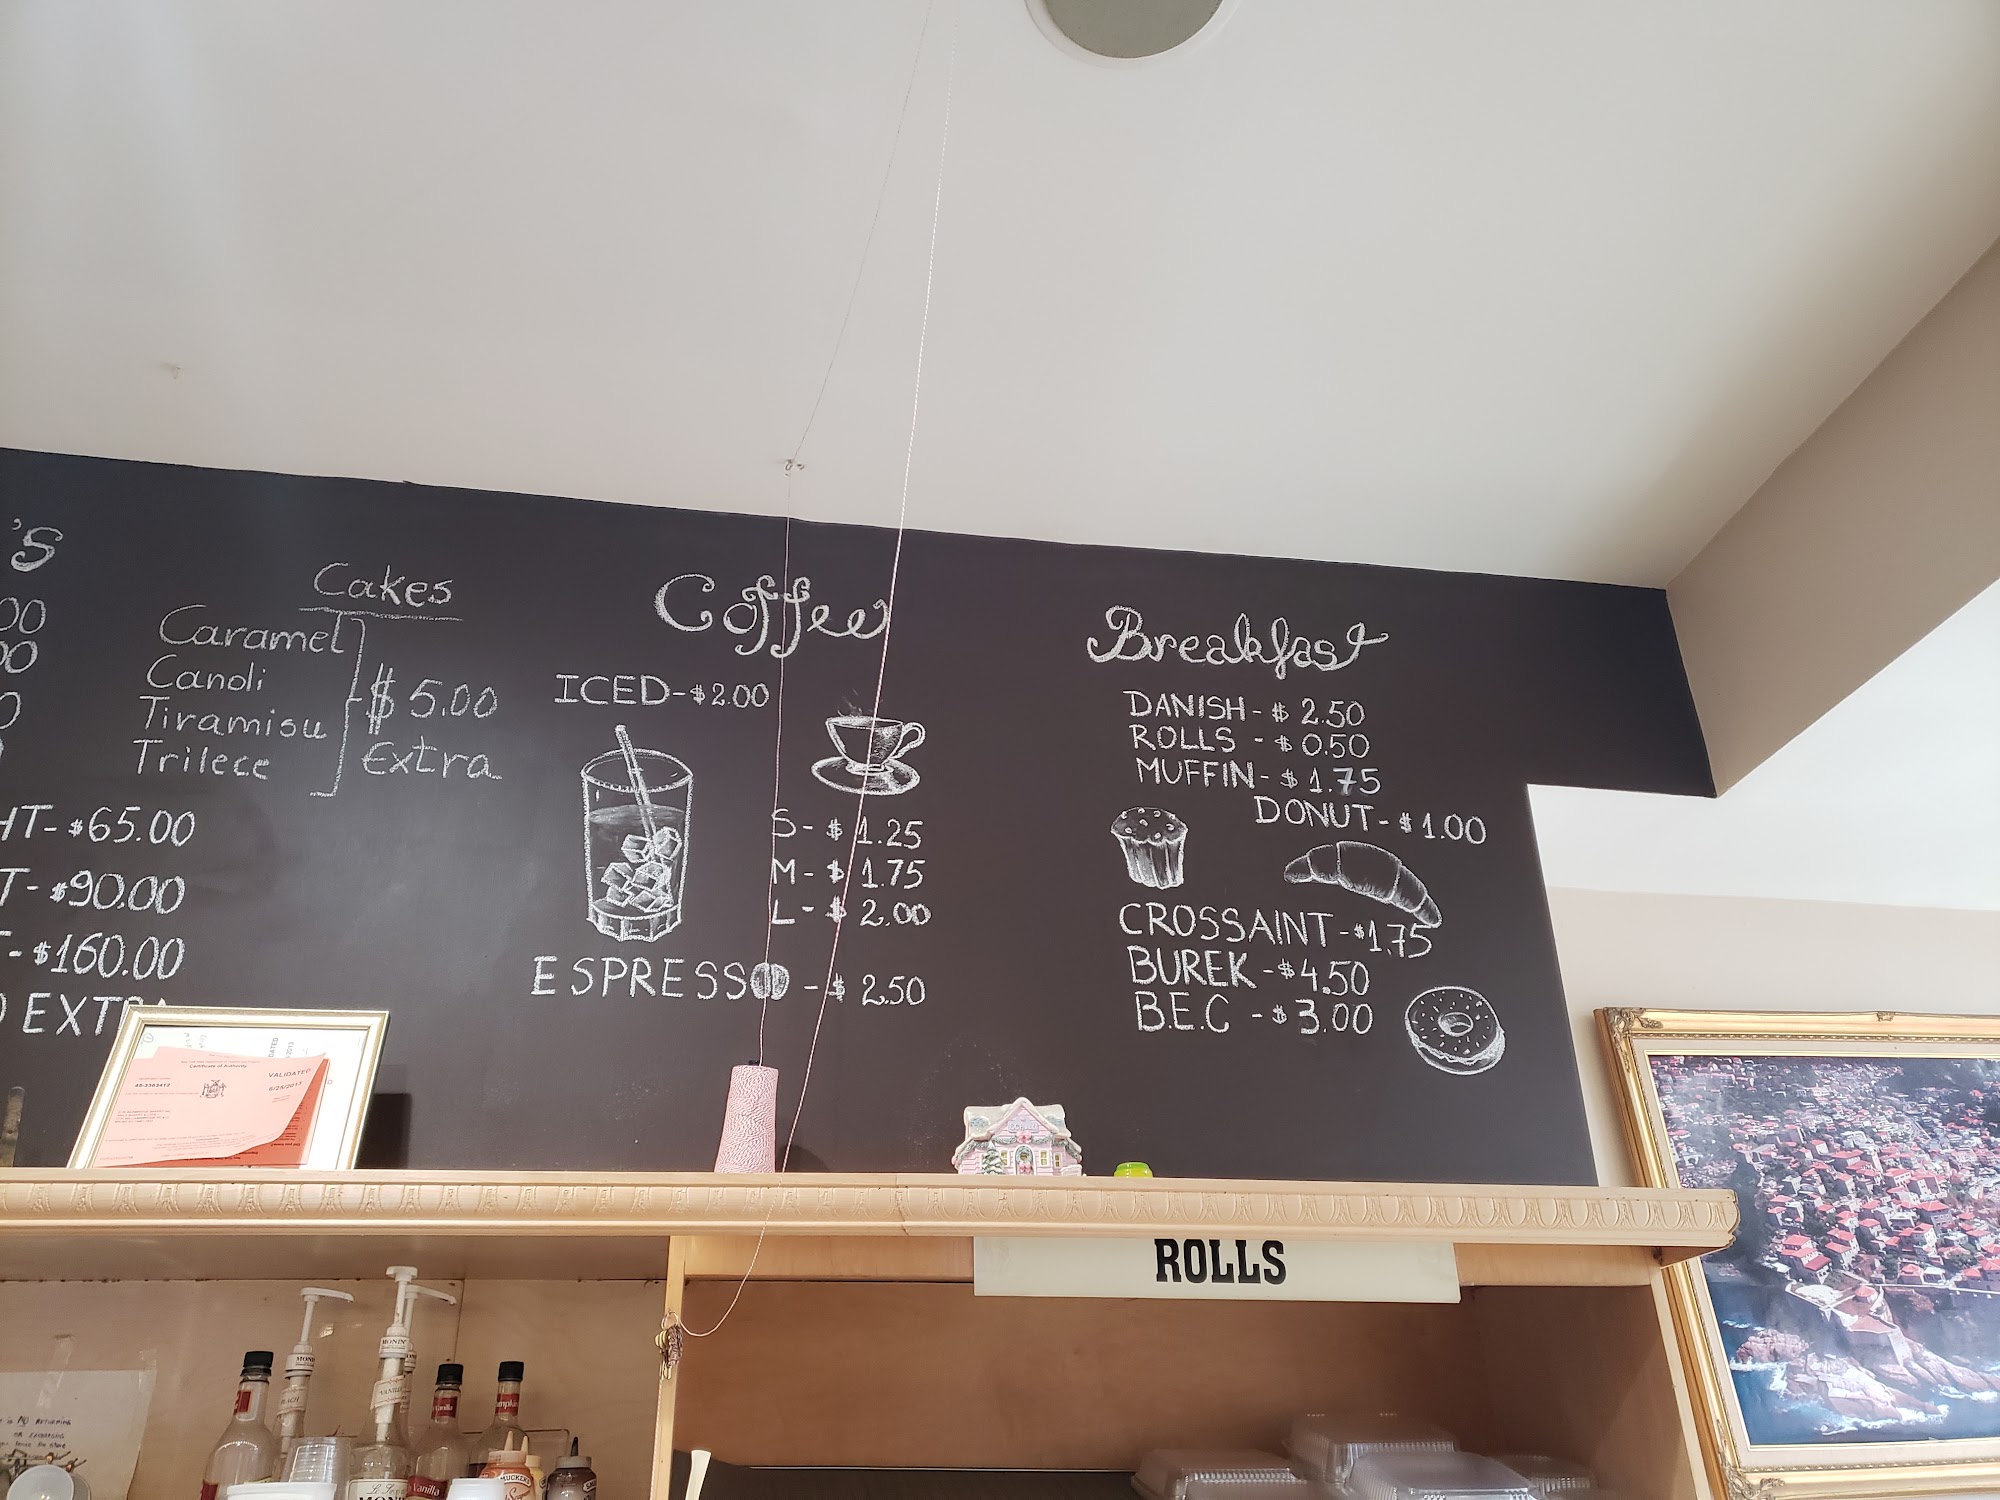 'S
00
00
0
Cakes
Caramel
Canoli
Tiramisu
Trilece
$5.00
Extra
HT-$65.00
T-$90.00
T-$160.00
EXTRA
Coffee
ICED-$2.00
S-$1.25
M-$1.75
L-$2.00
ESPRESSO-$2.50
Breakfast
DANISH-$2.50
ROLLS-$0.50
MUFFIN-$1.75
DONUT-$1.00
CROSSAINT-$1.75
BUREK-$4.50
B.E.C-$3.00
Certificate of Authority
VALIDATED
6/25/2013
ROLLS
MONIN
VANILLA
Vanilla
Vanilla
NO RETURNING